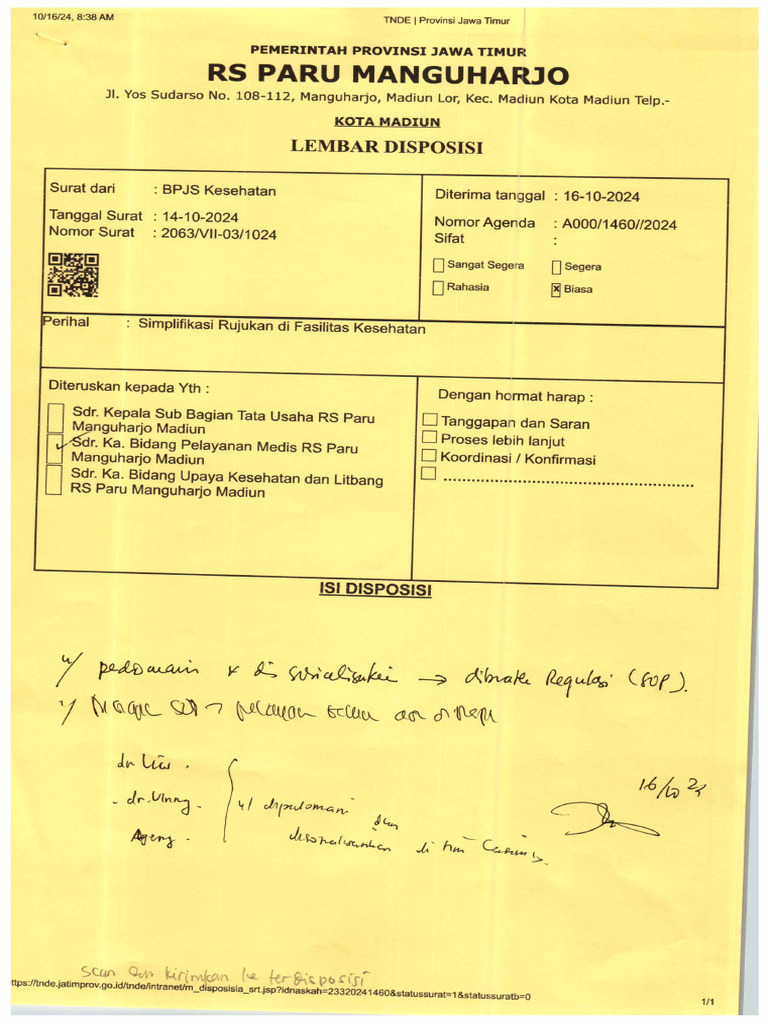 10/16/24, 8:38 AM
TNDE | Provinsi Jawa Timur
PEMERINTAH PROVINSI JAWA TIMUR
RS PARU MANGUHARJO
Jl. Yos Sudarso No. 108-112, Manguharjo, Madiun Lor, Kec. Madiun Kota Madiun Telp.-
KOTA MADIUN
LEMBAR DISPOSISI
Surat dari : BPJS Kesehatan
Tanggal Surat : 14-10-2024
Nomor Surat : 2063/VII-03/1024
Diterima tanggal : 16-10-2024
Nomor Agenda : A000/1460//2024
Sifat :
Sangat Segera
Segera
Rahasia
x Biasa
Perihal : Simplifikasi Rujukan di Fasilitas Kesehatan
Diteruskan kepada Yth :
Sdr. Kepala Sub Bagian Tata Usaha RS Paru
Manguharjo Madiun
Sdr. Ka. Bidang Pelayanan Medis RS Paru
Manguharjo Madiun
Sdr. Ka. Bidang Upaya Kesehatan dan Litbang
RS Paru Manguharjo Madiun
Dengan hormat harap :
Tanggapan dan Saran
Proses lebih lanjut
Koordinasi / Konfirmasi
................................................
ISI DISPOSISI
u/ pedomain + di sosialisasikan → dibuatk Regulasi (SOP).
u/ pelayan
dr.
- dr.
Ageng -
u/ dipedomani dan
di tim
16/10 24
scan dan kirimkan ke terdisposisi
https://tnde.jatimprov.go.id/tnde/intranet/m_disposisia_srt.jsp?idnaskah=23320241460&statussurat=1&statussuratb=0
1/1